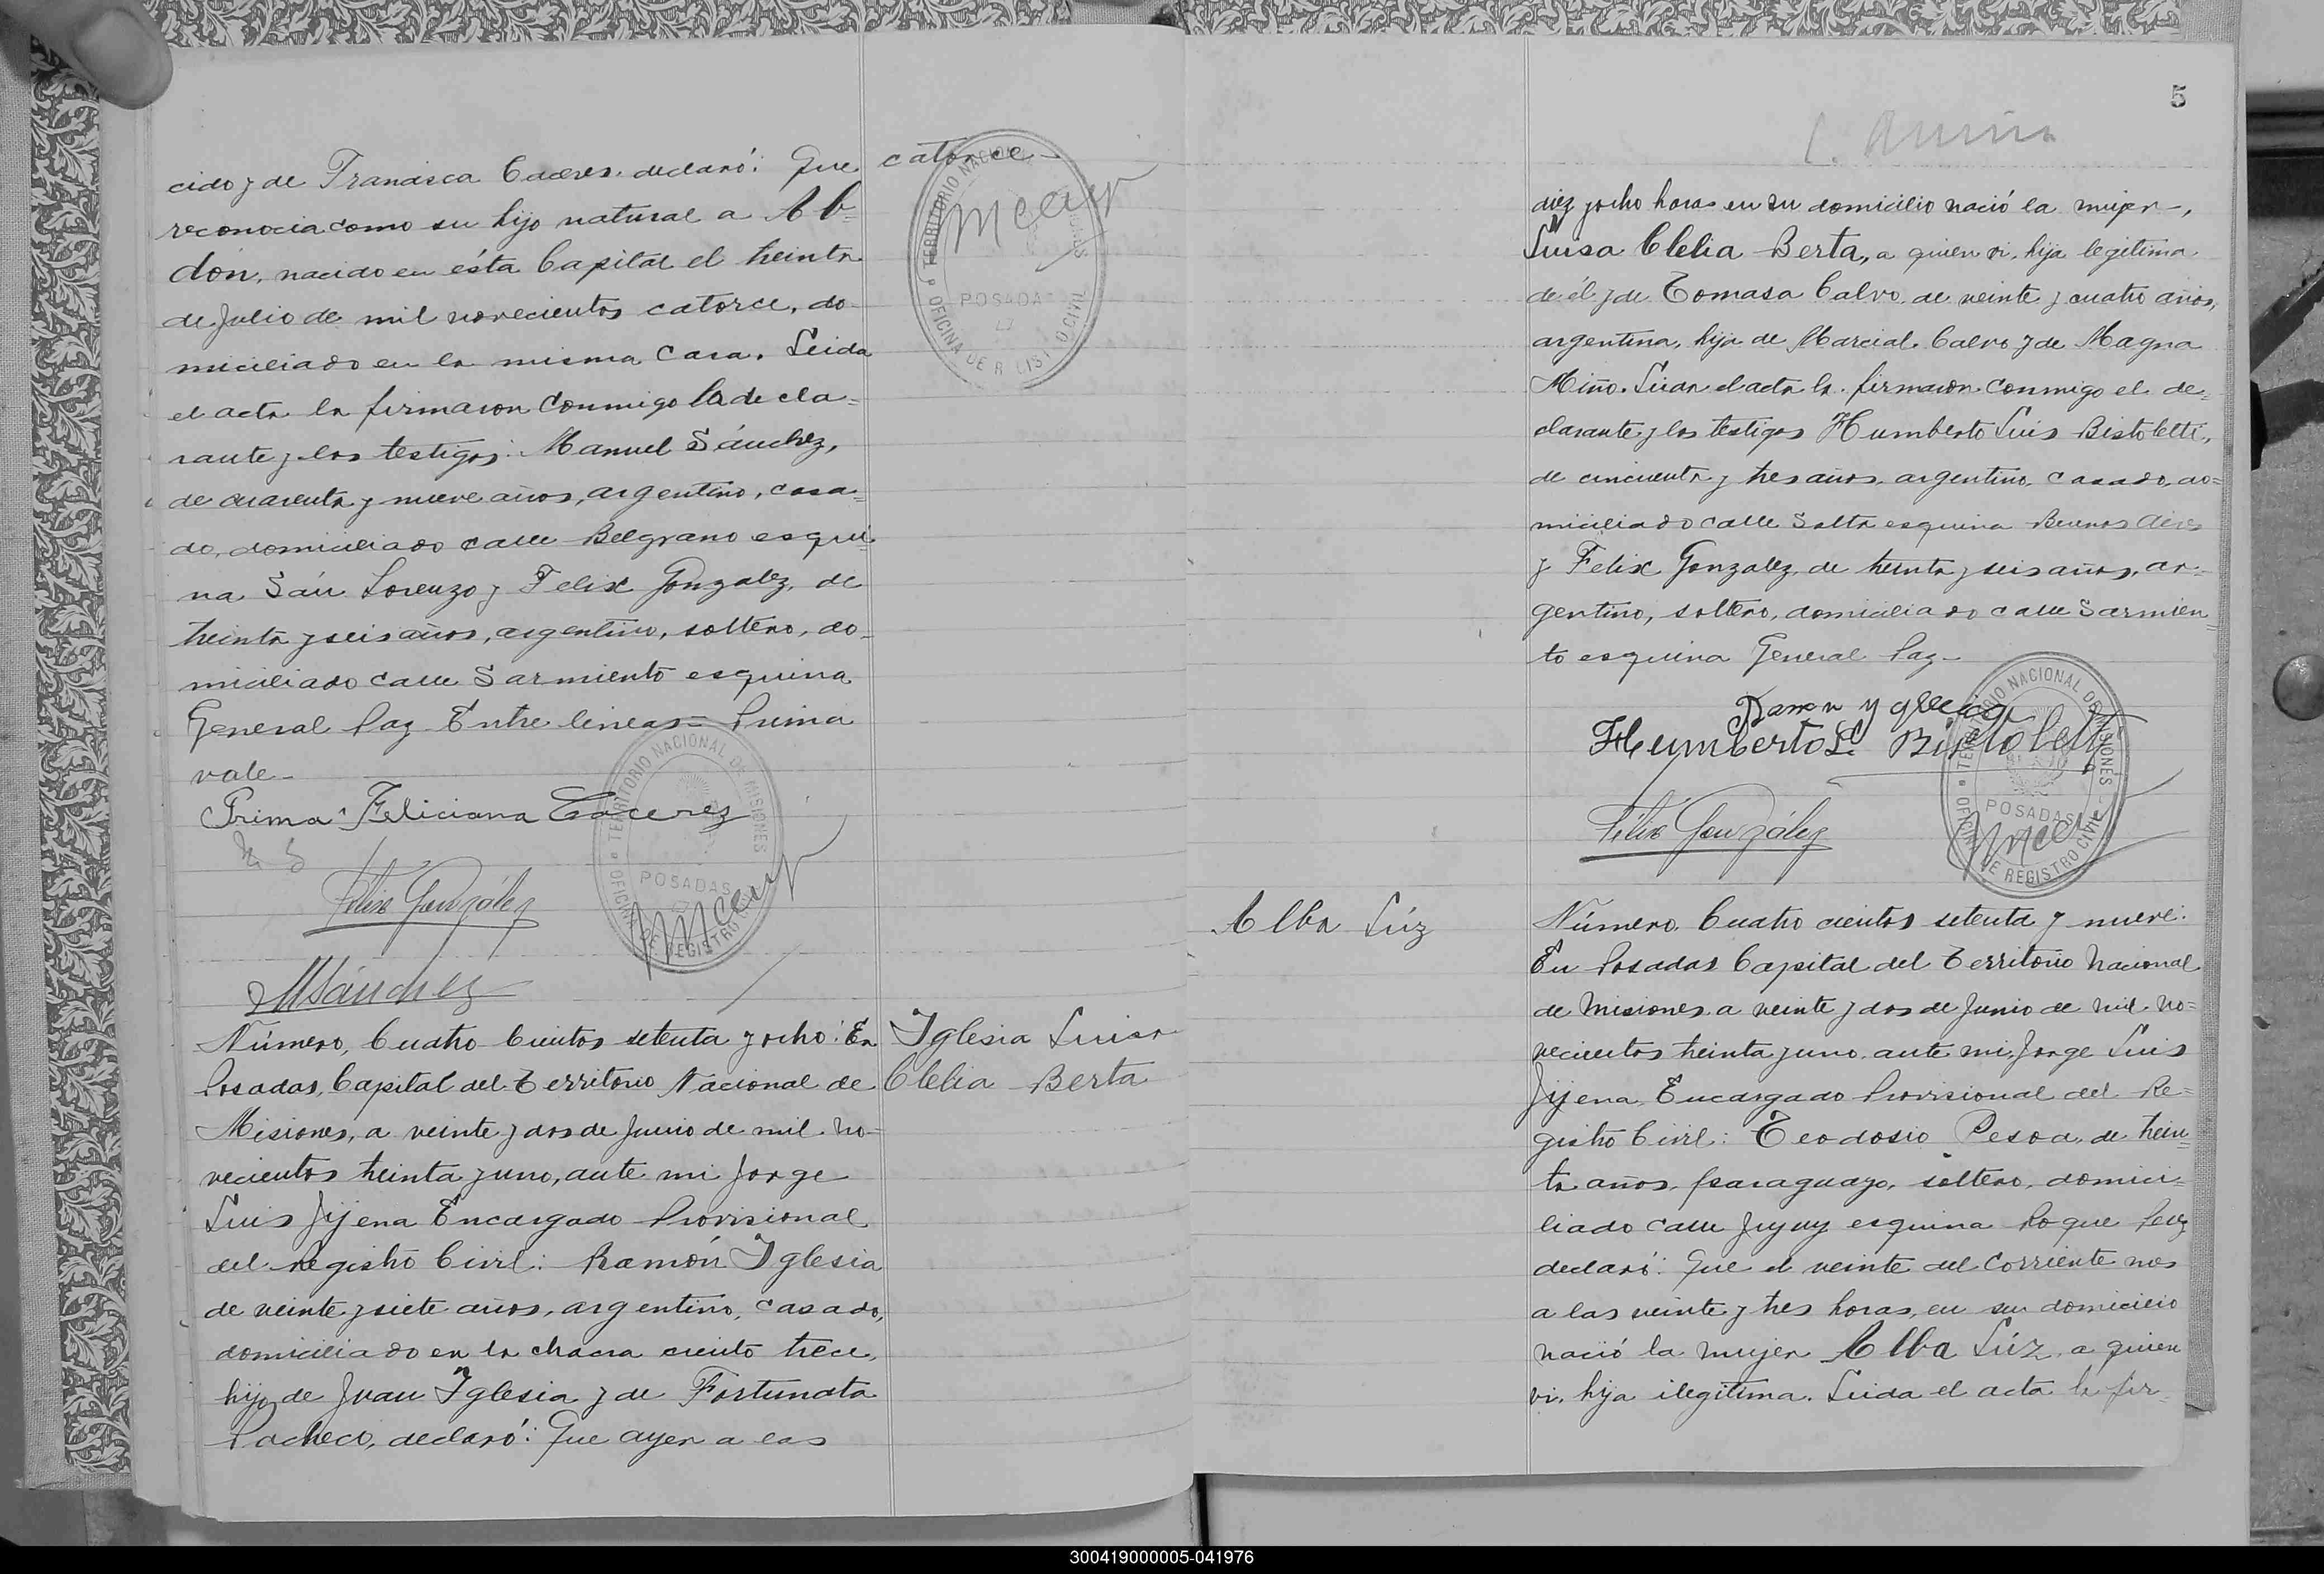 cido y de Francisca Caceres. declaró: Que
reconocia como su hijo natural a Ab=
dón, nacido en ésta Capital el treinta
de Julio de mil novecientos catorce, do-
miciliado en la misma casa. Leida
el acta la firmaron conmigo la decla=
rante y los testigos: Manuel Sánchez,
de cuarenta y nueve años, argentino, casa=
do, domiciliado calle Belgrano esqui=
na Sán Lorenzo y Felix Gonzalez, de
treinta y seis años, argentino, soltero, do=
miciliado calle Sarmiento esquina
General Paz. Entre lineas= Prima
vale-
Prima Feliciana Cacerez
Felix González
MSánchez
TERRITORIO NACIONAL DE MISIONES
POSADAS
OFICINA DE REGISTRO CIVIL
Número, Cuatro Cientos setenta y ocho: En
Posadas, Capital del Territorio Nacional de
Misiones, a veinte y dos de Junio de mil no=
vecientos treinta y uno, ante mi Jorge
Luis Jijena Encargado Provisional
del Registro Civil: Ramón Iglesia
de veinte y siete años, argentino, casado,
domiciliado en la chacra ciento trece,
hijo de Juan Iglesia y de Fortunata
Pacheco, declaró: Que ayer a las
catorce-
TERRITORIO NACIONAL
POSADA
OFICINA DE
Iglesia Luisa
Clelia Berta
5
diez y ocho horas en su domicilio nació la mujer-,
Luisa Clelia Berta, a quien vi, hija legitima
de él y de Tomasa Calvo, de veinte y cuatro años,
argentina, hija de Marcial Calvo y de Magna
Miño. Leida el acta la firmaron conmigo el de=
clarante y los testigos Humberto Luis Bistoletti,
de cincuenta y tres años, argentino, casado, do=
miciliado calle Salta esquina Buenos Aires
y Felix Gonzalez, de treinta y seis años, ar=
gentino, soltero, domiciliado calle Sarmien=
to esquina General Paz-
Ramon Yglecia
Humberto L. Bistoletti
Felix González
TERRITORIO NACIONAL DE MISIONES
POSADAS
OFICINA DE REGISTRO CIVIL
Alba Lúz
Número. Cuatro cientos setenta y nueve:
En Posadas Capital del Territorio Nacional
de Misiones a veinte y dos de Junio de mil no=
vecientos treinta y uno, ante mi, Jorge Luis
Jijena, Encargado Provisional del Re=
gistro Civil: Teodosio Pesoa, de trein=
ta años, paraguayo, soltero, domici=
liado calle Jujuy esquina Roque Perez
declaró: Que el veinte del corriente mes
a las veinte y tres horas, en su domicilio
nació la mujer Alba Lúz, a quien
vi, hija ilegitima. Leida el acta la fir-
300419000005-041976